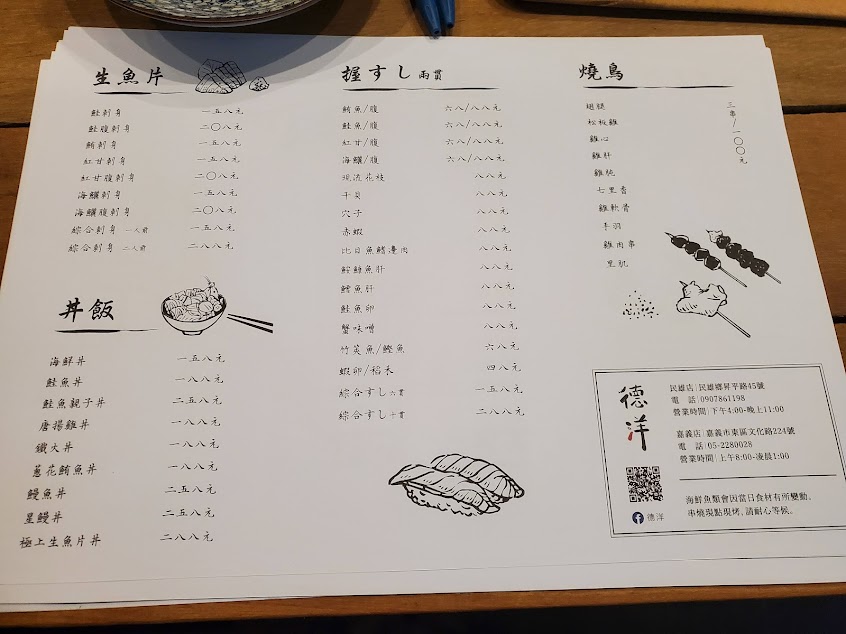 生魚片
鮭刺身 一五八元
鮭腹刺身 二〇八元
鮪刺身 一五八元
紅甘刺身 一五八元
紅甘腹刺身 二〇八元
海鱺刺身 一五八元
海鱺腹刺身 二〇八元
綜合刺身 一人前 一五八元
綜合刺身 二人前 二八八元
丼飯
海鮮丼 一五八元
鮭魚丼 一八八元
鮭魚親子丼 二五八元
唐揚雞丼 一八八元
鐵火丼 一八八元
蔥花鮪魚丼 一八八元
鰻魚丼 二五八元
星鰻丼 二五八元
極上生魚片丼 二八八元
握すし 兩貫
鮪魚/腹 六八/八八元
鮭魚/腹 六八/八八元
紅甘/腹 六八/八八元
海鱺/腹 六八/八八元
現流花枝 八八元
干貝 八八元
穴子 八八元
赤蝦 八八元
比目魚鰭邊肉 八八元
鮟鱇魚肝 八八元
鱈魚肝 八八元
鮭魚卵 八八元
蟹味噌 八八元
竹筴魚/鰹魚 六八元
蝦卵/稻禾 四八元
綜合すし 六貫 一五八元
綜合すし 十貫 二八八元
燒鳥
翅腿 三串/一〇〇元
松板雞
雞心
雞肝
雞胗
七里香
雞軟骨
手羽
雞肉串
里肌
德洋
民雄店|民雄鄉昇平路45號
電 話|0907861198
營業時間|下午4:00-晚上11:00
嘉義店|嘉義市東區文化路224號
電 話|05-2280028
營業時間|上午8:00-凌晨1:00
德洋
海鮮魚類會因當日食材有所變動。
串燒現點現烤,請耐心等候。